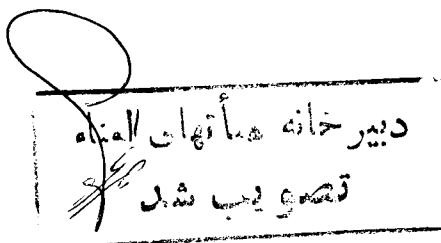 دبیرخانه هیأتهای امناء
تصویب شد